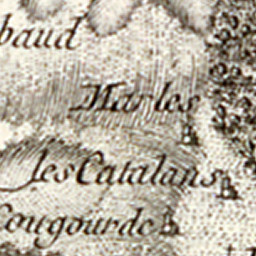 baud
Marles
les Catalans
Cougourde